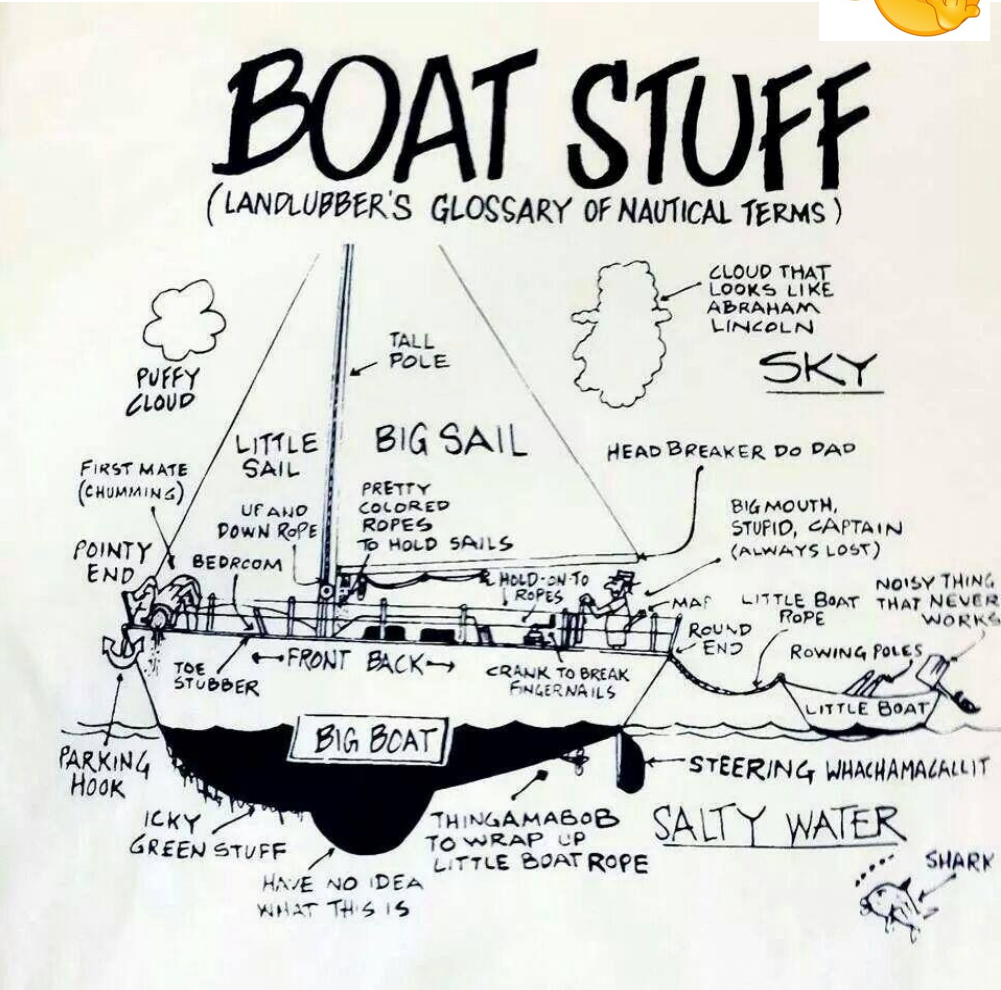 BOAT STUFF
(LANDLUBBER'S GLOSSARY OF NAUTICAL TERMS)
CLOUD THAT
LOOKS LIKE
ABRAHAM
LINCOLN
SKY
PUFFY
CLOUD
TALL
POLE
LITTLE
SAIL
BIG SAIL
HEAD BREAKER DO DAD
FIRST MATE
(CHUMMING)
UP AND
DOWN ROPE
PRETTY
COLORED
ROPES
TO HOLD SAILS
BIG MOUTH,
STUPID, CAPTAIN
(ALWAYS LOST)
POINTY
END
BEDROOM
HOLD-ON-TO
ROPES
MAP
LITTLE BOAT
ROPE
NOISY THING
THAT NEVER
WORKS
ROUND
END
ROWING POLES
TOE
STUBBER
FRONT BACK
CRANK TO BREAK
FINGERNAILS
LITTLE BOAT
BIG BOAT
PARKING
HOOK
STEERING WHACHAMACALLIT
ICKY
GREEN STUFF
THINGAMABOB
TO WRAP UP
LITTLE BOAT ROPE
SALTY WATER
HAVE NO IDEA
WHAT THIS IS
SHARK